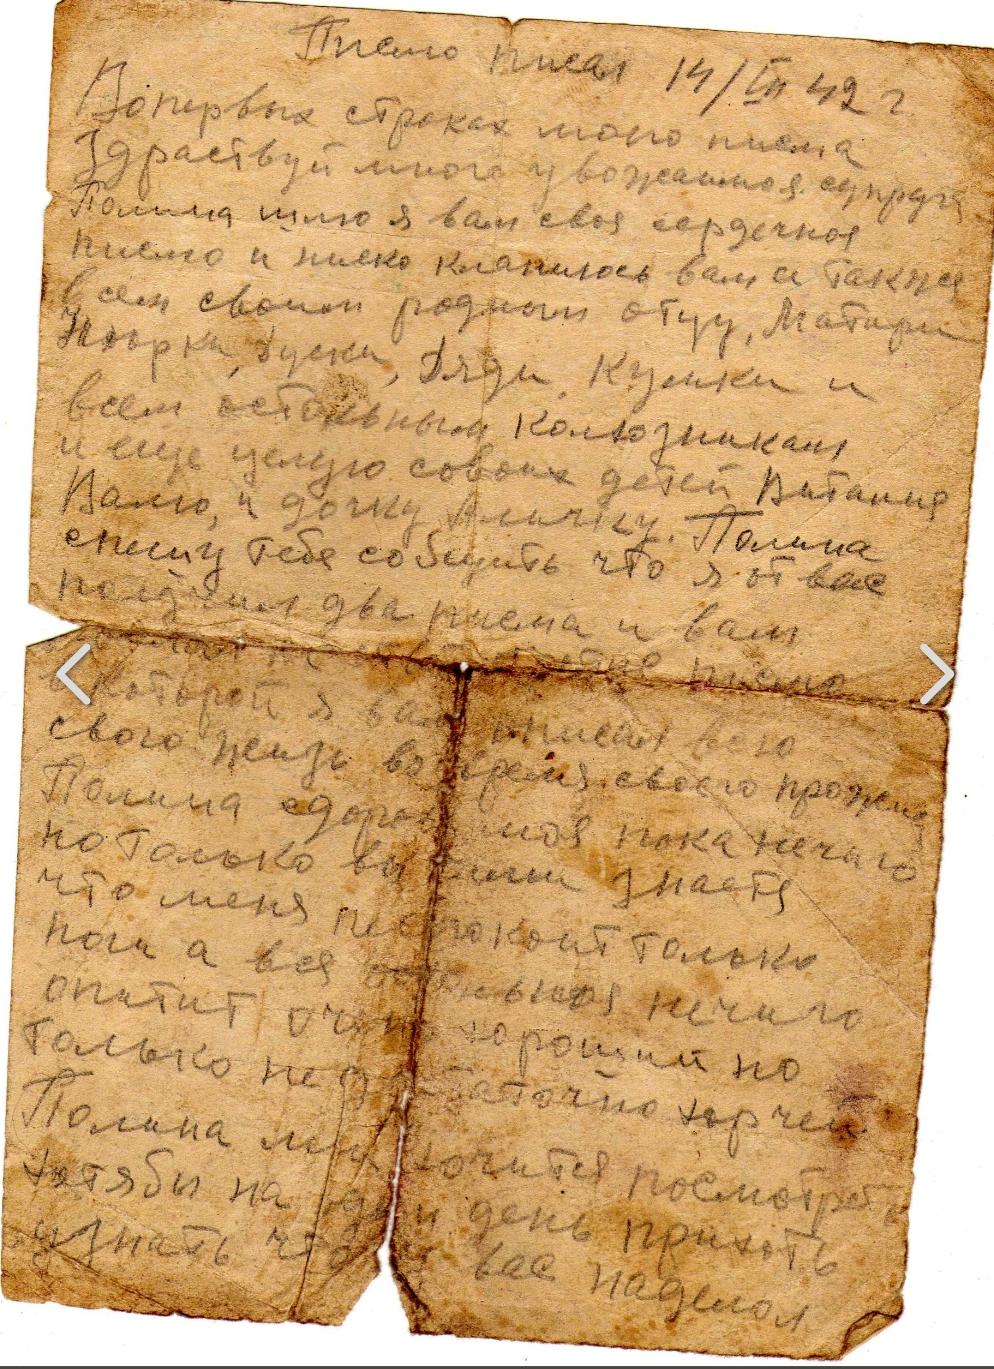 Письмо писал 14/VII 42 г.
Вопервых строках моио писма
Здраствуй много уважаемоя супруга
Полина шлю я вам своя сердечноя
писмо и ниско кланиюсь вам а также
всем своим родным отцу, Матири
Дуски, Дяди Кумки и
всем остольным Колхозникам
и еще целую совоих детей Виталия
Валю, и дочку Аличку. Полина
спешу тебе собщить что я от вас
получил два писма и вам
писмо
в которой я вам описал всю
свою жизь во время своего прожеия
Полина сдоровя моя пока нечаго
но только вы сами знаетя
что меня песпокоит только
ноги а вся остольноя нечиго
опитит очинь хороший но
только недостаточно харчей
Полина мне хочится посмотреть
хотябы на один день прихать
узнать что у вас наделол